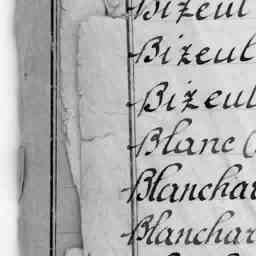 Bizeul
Bizeul
Bizeul
Blanc (
Blanchar
Blanchar